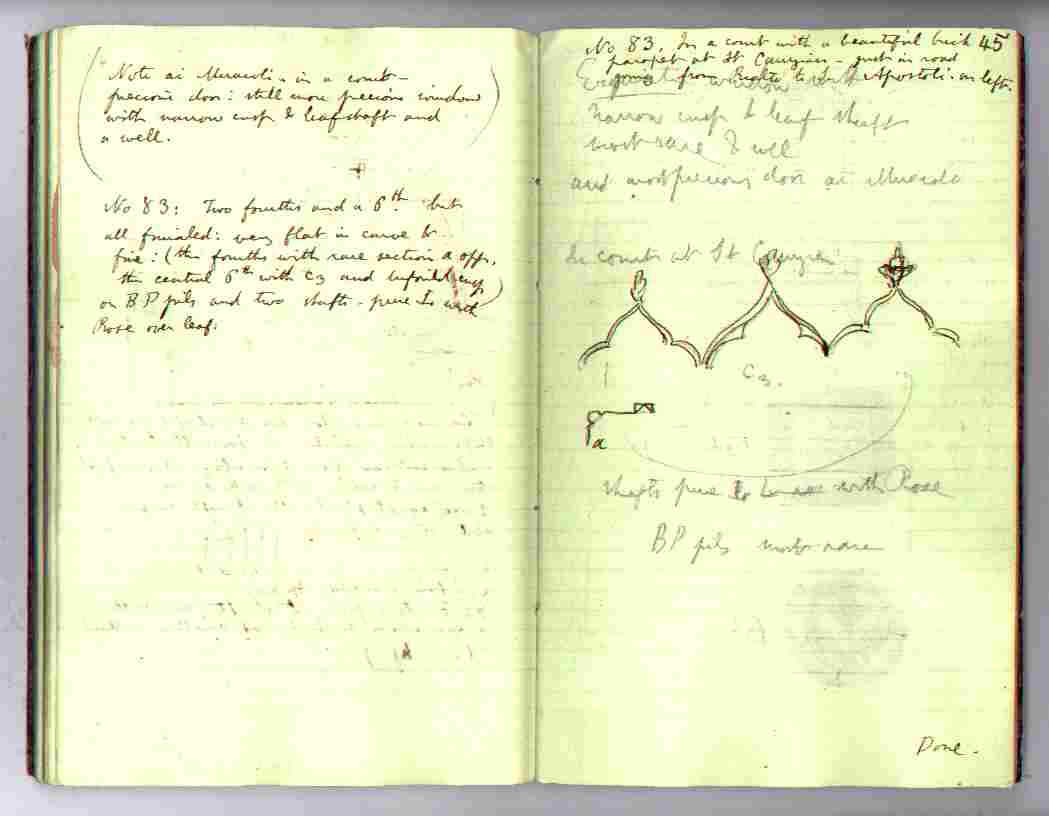 Note ai Miracoli. in a court -
precious door: still more precious window
with narrow cusp & leaf shaft and
a well.
No 83: Two fourths and a 6th but
all finialed: very flat in curve &
fine: (the fourths with rare section a opp.
the central 6th with C3 and cusp)
on BP pils and two shafts - pure to with
Rose over leaf:
45
No 83. In a court with a beautiful brick
parapet at St Canzian - just in road
going from Rialto to St Apostoli. on left.
window with
narrow cusp & leaf shaft
most rare & well
and most precious door ai Miracoli
In courts at St Canzian
C3.
a
shafts pure to with Rose
BP pils most rare
Done.